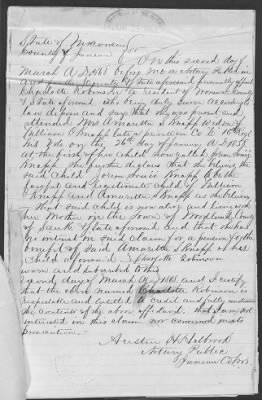 State of Wisconsin
County of Juneau
On this second day of
March A.D. 1868, before me a Notary Public in
and for the County & State aforesaid personally appeared
Charlotte Robinson a resident of County
& State aforesaid who being duly sworn according to
law deposes and says that she was present and
attended Mrs Amarilla Knapp Widow of
William Knapp late a private in Co E
Wis Vols on the 26th day of January A.D. 1855
at the birth of her Child
Knapp. She further deposes that she believes the
said Child to be the
lawful and legitimate child of William
Knapp and Amarilla Knapp as she believes
that said child is now alive and living with
her Mother in the Town of Woodland County
of Sauk & State aforesaid and that she has
no interest in said claim for a pension for the
benefit of said Amarilla Knapp or her
Child aforesaid. Charlotte Robinson
Sworn and subscribed to this
second day of March A.D. 1868 and I certify
that the above named Charlotte Robinson is
respectable and entitled to credit and fully understood
the contents of the above affidavit that I am not
interested in this claim nor concerned in its
prosecution.
Notary Public
Juneau Co Wis